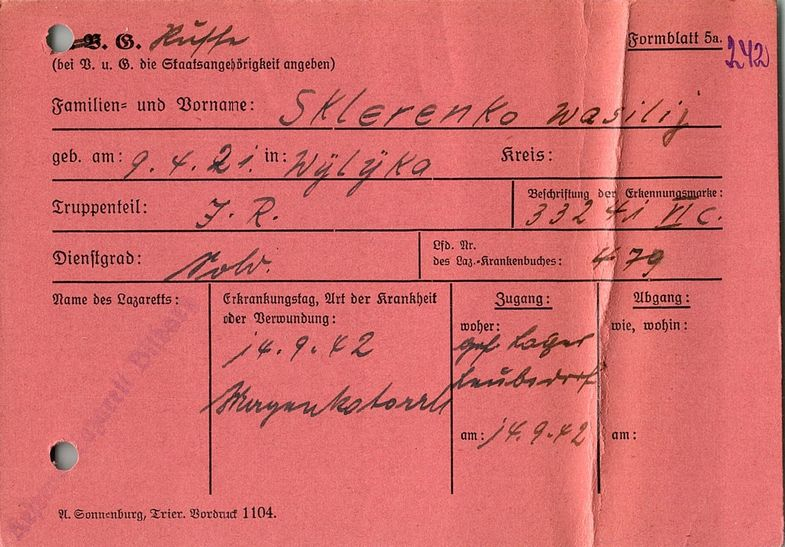 V. G. Russe
Formblatt 5a.
242
(bei V. u. G. die Staatsangehörigkeit angeben)
Familien= und Vorname: Sklerenko Wasilij
geb. am: 9.4.21. in: Wÿlÿka Kreis:
Truppenteil: J.R.
Beschriftung der Erkennungsmarke:
33241 VI c.
Dienstgrad: Sold.
Lfd. Nr.
des Laz.-Krankenbuches: 479
Name des Lazaretts:
Erkrankungstag, Art der Krankheit
oder Verwundung:
14.9.42
Magenkatarrh
Zugang:
woher:
gef. Lager
Leubsdorf
am: 14.9.42
Abgang:
wie, wohin:
am:
A. Sonnenburg, Trier. Vordruck 1104.